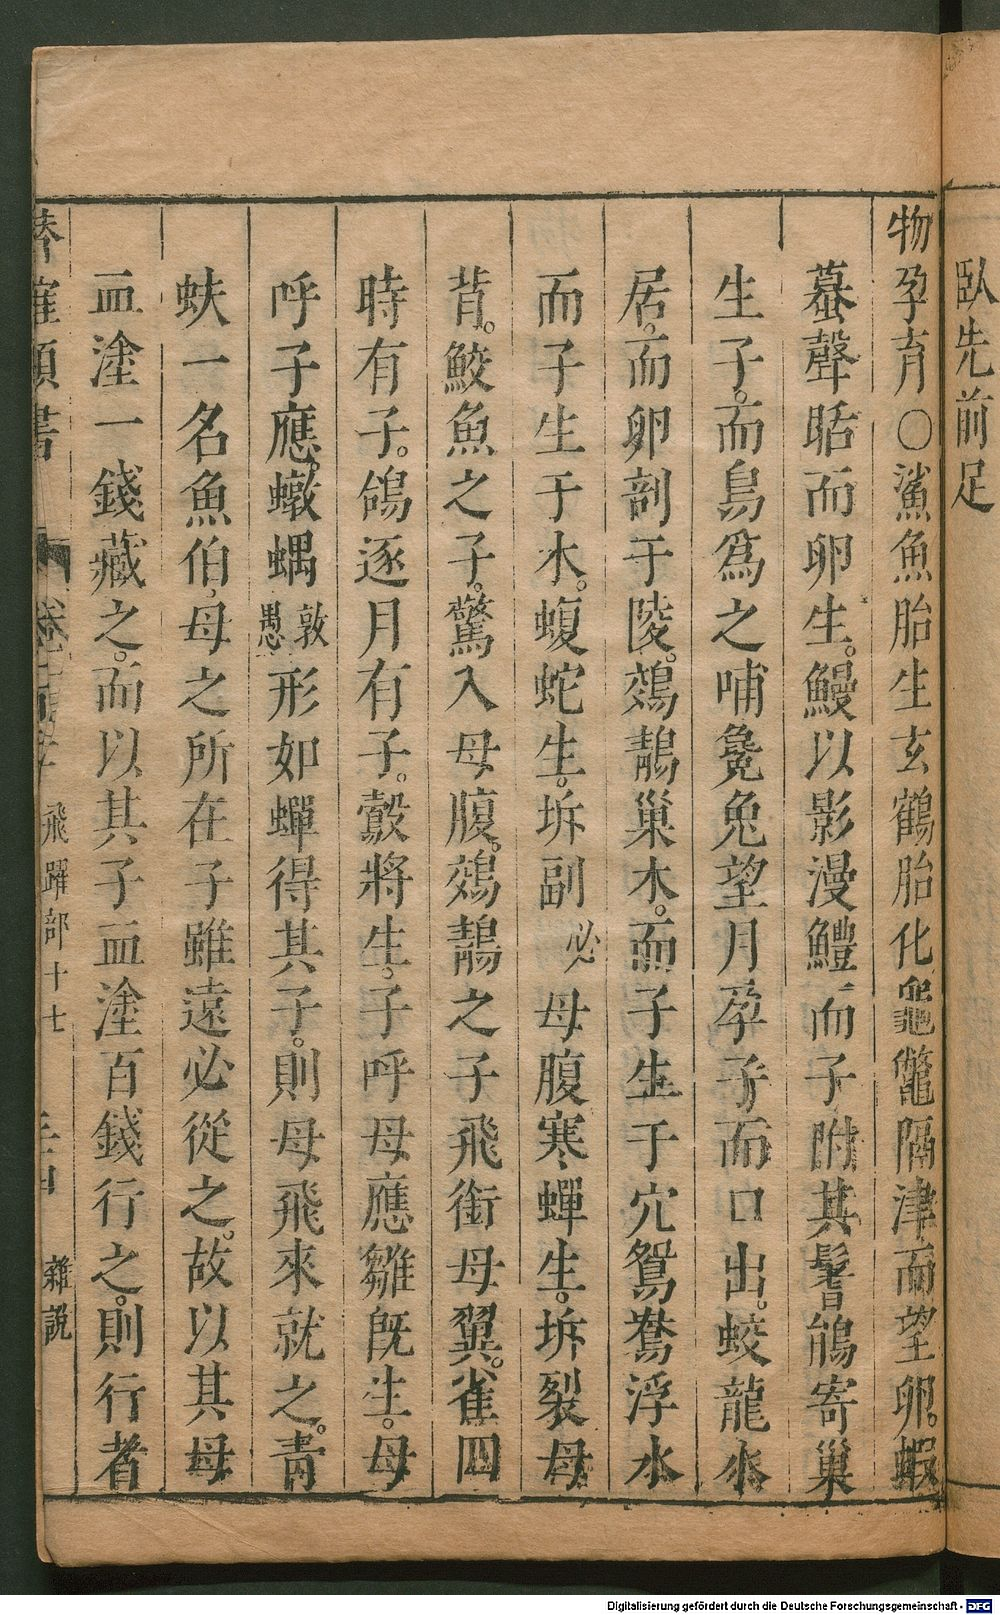 臥先前足
物孕育○鯊魚胎生玄鶴胎化龜鼈隔津而望卵。蝦
蟇聲聒而卵生。鰻以影漫鱧而子附其鬐鵃寄巢
生子。而鳥爲之哺毚兔望月孕子而口出。蛟龍水
居。而卵剖于陵。鵁鶄巢木。而子生于穴鴛鴦浮水
而子生于水。蝮蛇生。坼副必母腹寒蟬生。坼裂母
背。鮫魚之子。驚入母腹。鵁鶄之子飛銜母翼。雀四
時有子。鴿逐月有子。鷇將生。子呼母應雛旣生。母
呼子應。蠍蝺敦愚形如蟬得其子。則母飛來就之。靑
蚨一名魚伯,母之所在子雖遠必從之。故以其母
血塗一錢藏之。而以其子血塗百錢行之。則行者
飛躍部十七
雜說